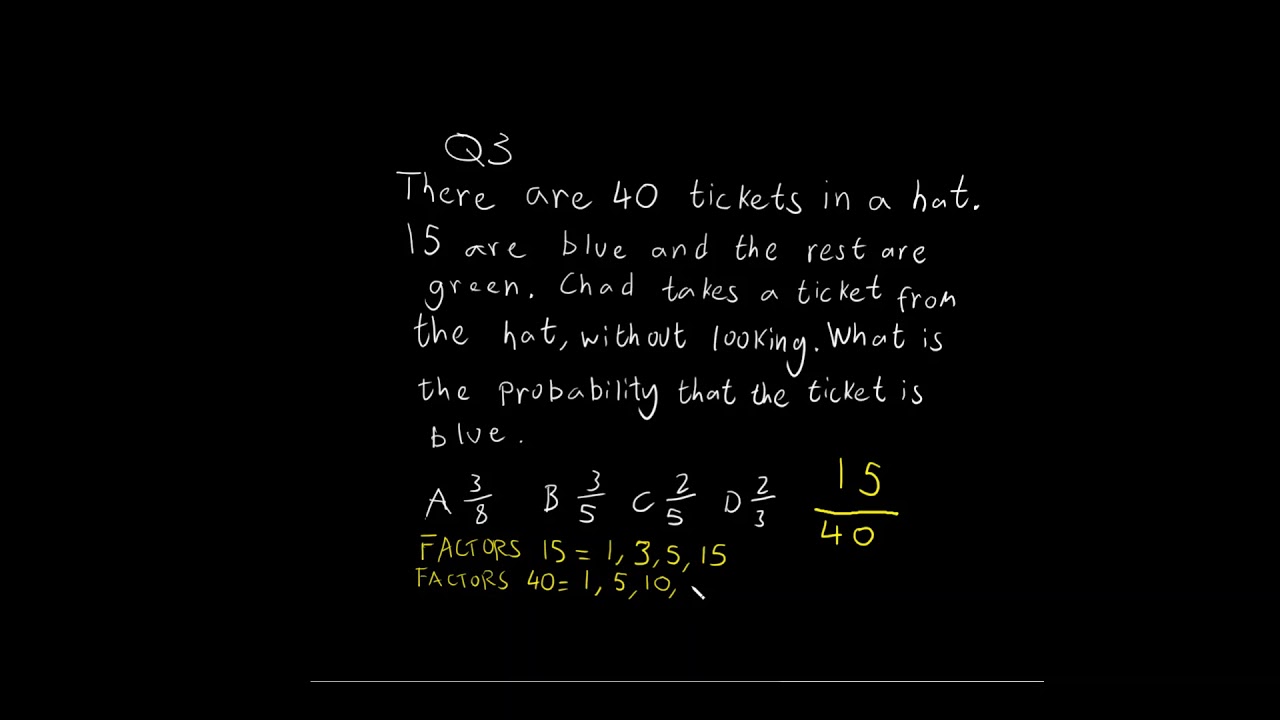 Q3
There are 40 tickets in a hat.
15 are blue and the rest are
green. Chad takes a ticket from
the hat, without looking. What is
the probability that the ticket is
blue.
A 3/8 B 3/5 C 2/5 D 2/3 15/40
FACTORS 15 = 1, 3, 5, 15
FACTORS 40 = 1, 5, 10,